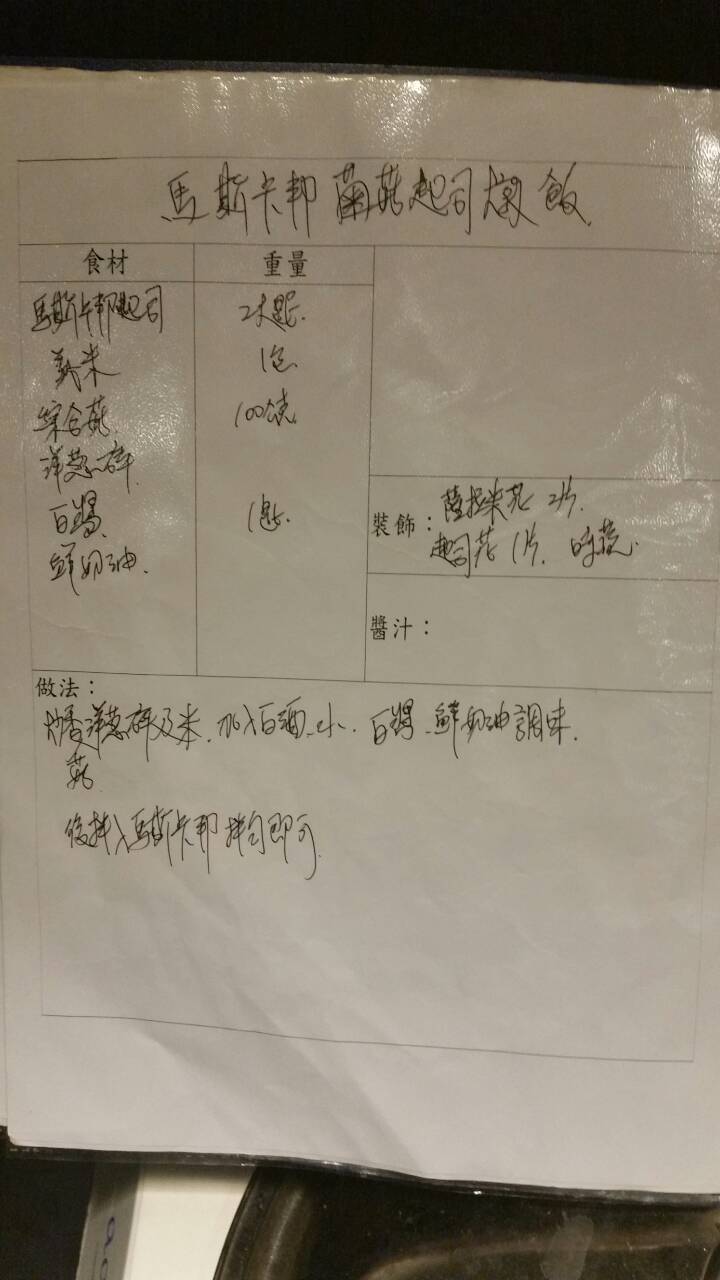 馬斯卡邦菌菇起司燉飯
食材 重量
馬斯卡邦起司 2大匙
義米 1包
綜合菇 100克
洋蔥碎
白醬 1匙
鮮奶油
裝飾： 薩拉米花 2片
起司花 1片 時蔬
醬汁：
做法：
炒香洋蔥碎及米、加入白酒、水、白醬、鮮奶油調味
菇
後拌入馬斯卡邦拌勻即可